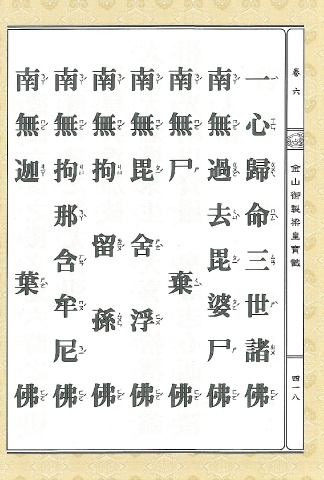 卷六
金山御製梁皇寶懺
四一八
一心歸命三世諸佛
南無過去毘婆尸佛
南無尸棄佛
南無毘舍浮佛
南無拘留孫佛
南無拘那含牟尼佛
南無迦葉佛